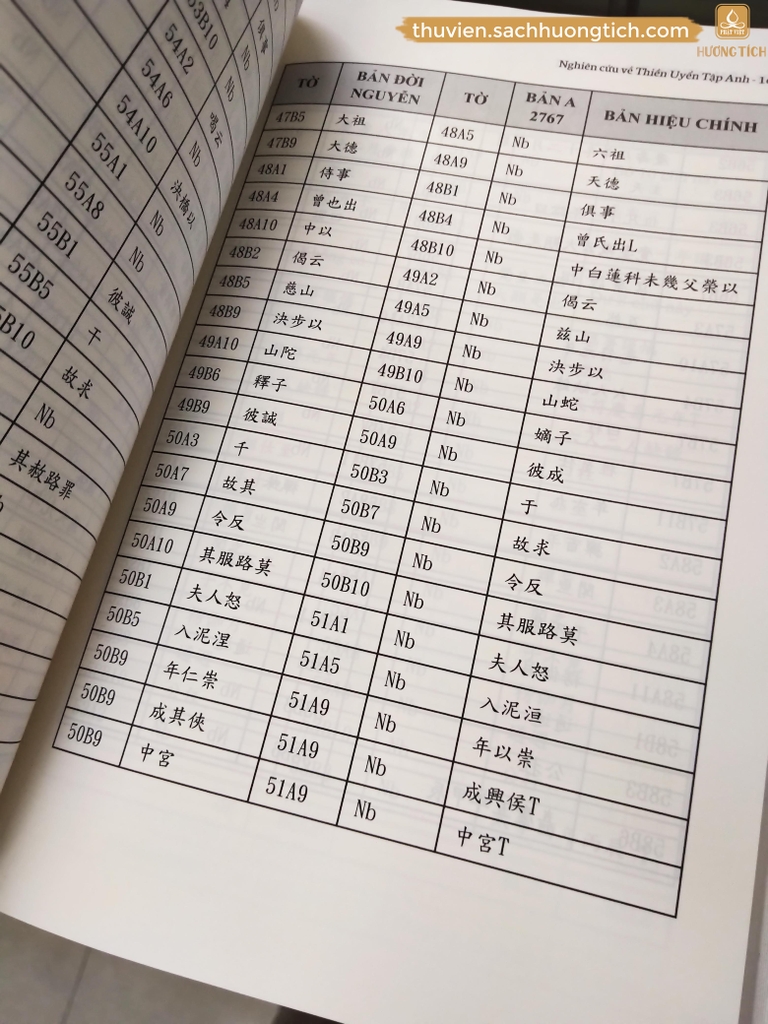 thuvien.sachhuongtich.com
PHẬT VIỆT
HƯƠNG TÍCH
Nghiên cứu về Thiền Uyển Tập Anh -
TỜ BẢN ĐỜI NGUYÊN TỜ BẢN A 2767 BẢN HIỆU CHÍNH
47B5 大祖 48A5 Nb 六祖
47B9 大德 48A9 Nb 天德
48A1 侍事 48B1 Nb 俱事
48A4 曾也出 48B4 Nb 曾氏出L
48A10 中以 48B10 Nb 中白蓮科未幾父榮以
48B2 偈云 49A2 Nb 偈云
48B5 慈山 49A5 Nb 兹山
48B9 決步以 49A9 Nb 決步以
49A10 山陀 49B10 Nb 山蛇
49B6 釋子 50A6 Nb 嫡子
49B9 彼誠 50A9 Nb 彼成
50A3 千 50B3 Nb 于
50A7 故其 50B7 Nb 故求
50A9 令反 50B9 Nb 令反
50A10 其服路莫 50B10 Nb 其服路莫
50B1 夫人怒 51A1 Nb 夫人怒
50B5 入泥涅 51A5 Nb 入泥洹
50B9 年仁崇 51A9 Nb 年以崇
50B9 成其俠 51A9 Nb 成興侯T
50B9 中宮 51A9 Nb 中宮T
53B10
54A2
54A6 喝云
54A10 Nb
55A1 決橋以
55A8 Nb
55B1 Nb
55B5 彼誠
5B10 千
故求
Nb
其赦路罪